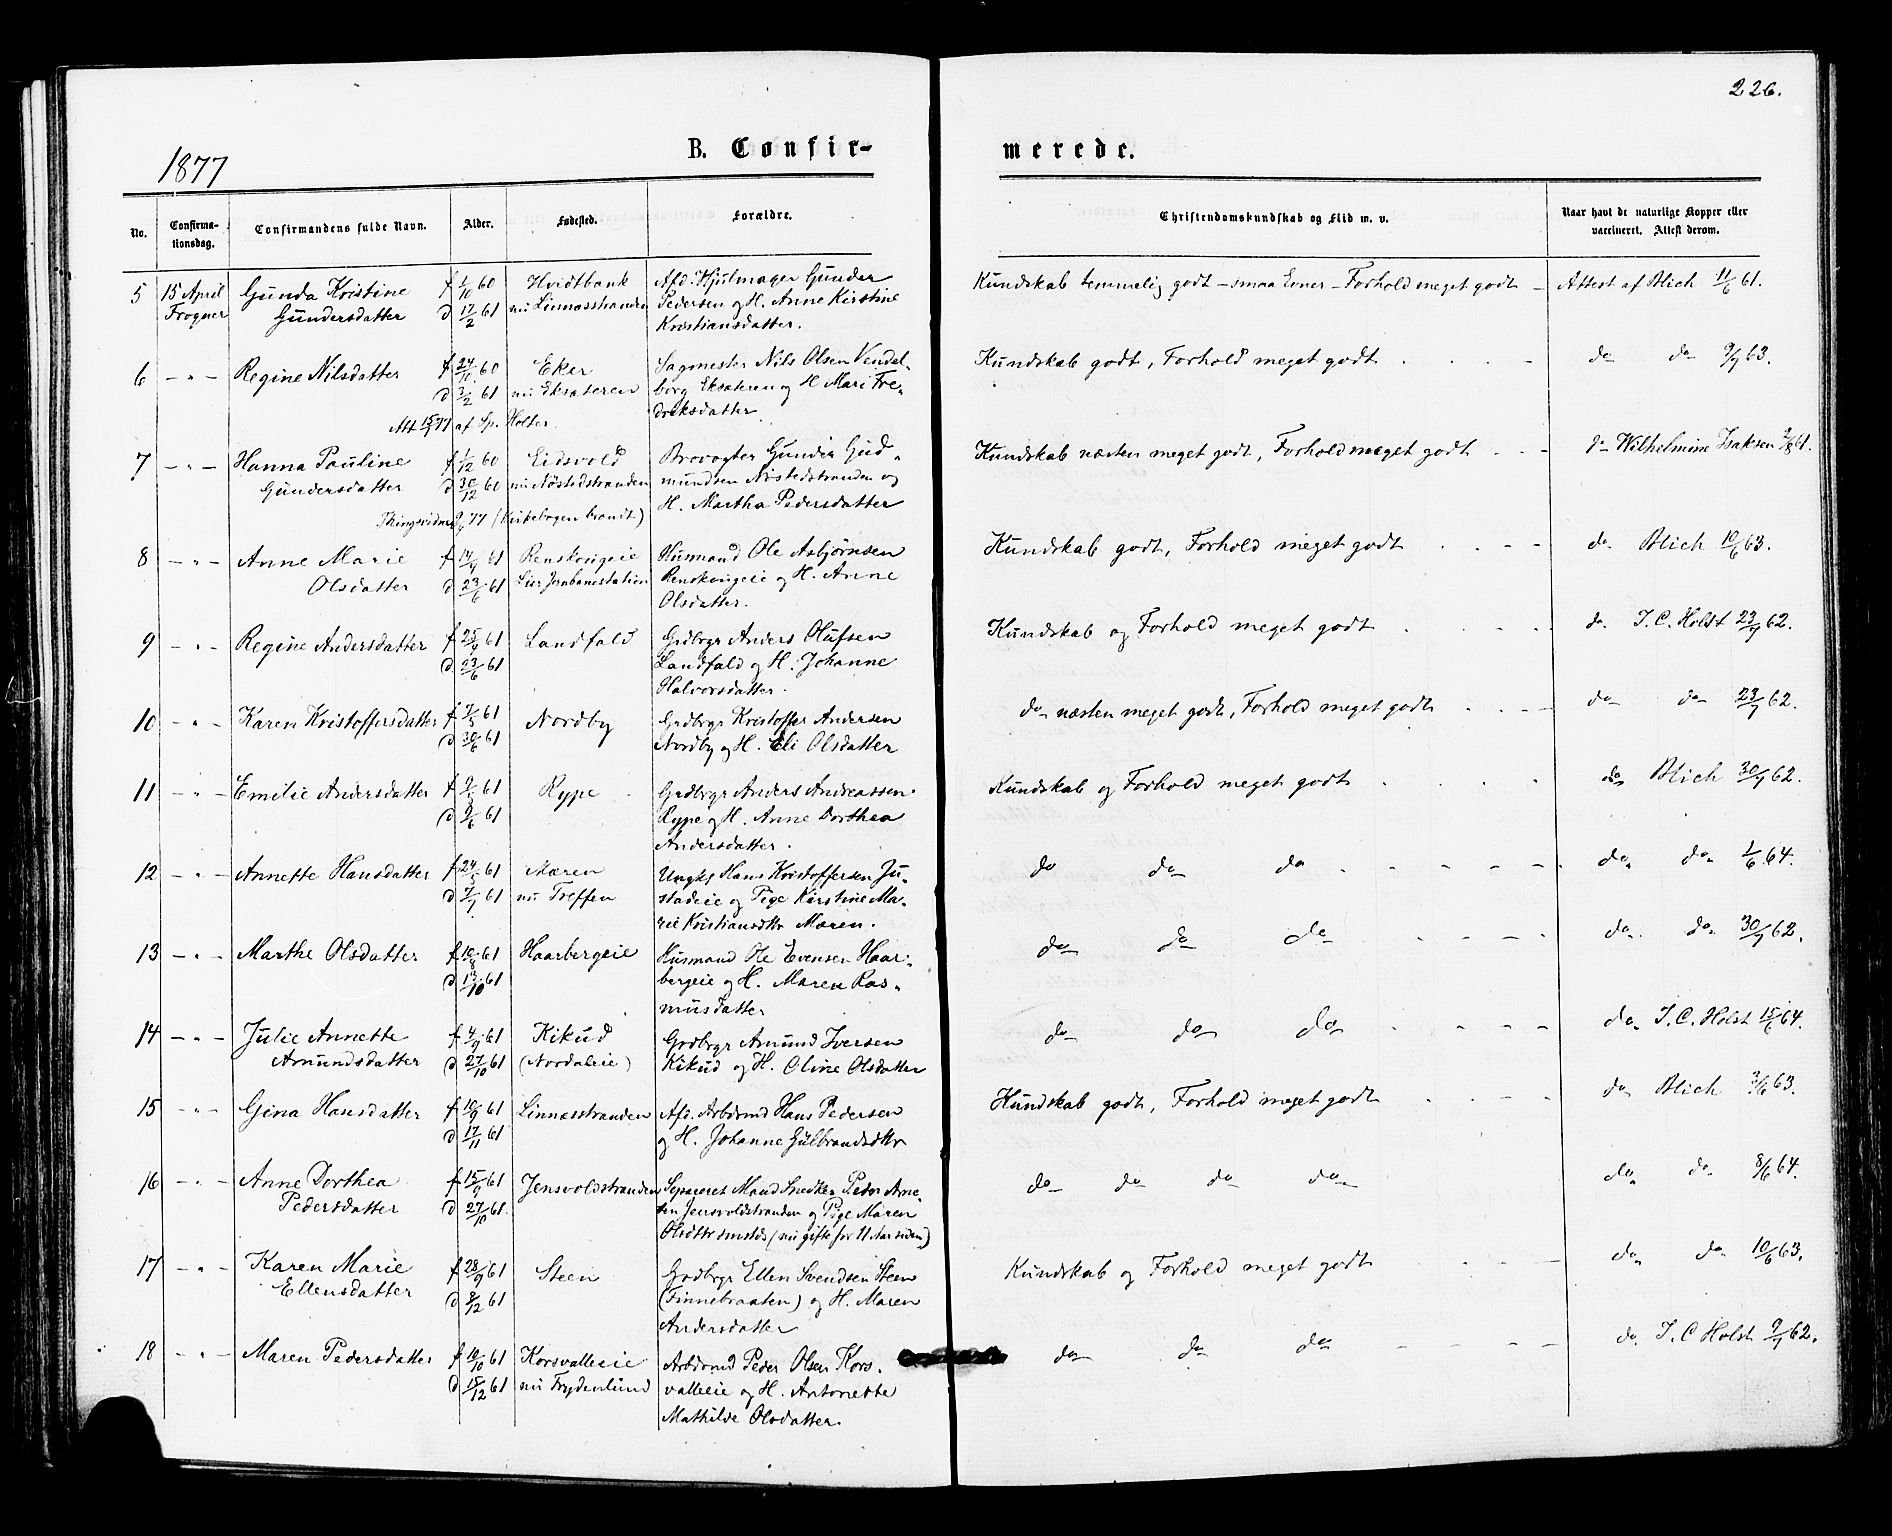 226.
1877
B. Confir-
merede.
No.
Confirma-
tionsdag.
Confirmandens fulde Navn.
Alder.
Fødested.
Forældre.
Christendomskundskab og Flid m. v.
Naar havt de naturlige Kopper eller
vaccineret. Attest derom.
5 15 April Gunda Kristine f 1/10 60 Hvidtbank Afd. Hjulmager Gunder Kundskab temmelig godt - smaa Evner - Forhold meget godt - Attest af Blich 11/6 61.
Frogner Gundersdatter d 17/2 61 nu Linnæsstranden Pedersen og H. Anne Kirstine
Kristiansdatter.
6 - " - Regine Nilsdatter f 24/11 60 Eker Sagmester Nils Olsen Vendel- Kundskab godt, Forhold meget godt do do 9/9 63.
d 3/2 61 nu Eksæteren borg Eksæteren og H Mari Fre-
Att 15/1 77 af Sp. Holter driksdatter
7 - " - Hanna Pauline f 1/12 60 Eidsvold Brovogter Gunder Gud- Kundskab næsten meget godt, Forhold meget godt do Wilhelmine Isaksen 2/8 61.
Gundersdatter d 30/12 60 nu Nøstedstranden mundsen Nøstedstranden og
Thingsvidne 9/4 77 (Kirkebogen brændt) H. Martha Pedersdatter
8 - " - Anne Marie f 14/4 61 Renskougeie Husmand Ole Asbjørnsen Kundskab godt, Forhold meget godt do Blich 10/6 63.
Olsdatter d 23/6 61 Lier Jernbanestation Renskougeie og H. Anne
Olsdatter.
9 - " - Regine Andersdatter f 25/4 61 Landfald Grdbrgr Anders Olufsen Kundskab og Forhold meget godt do. I. C. Holst 23/9 62.
d. 23/6 61 Landfald og H. Johanne
Halvorsdatter.
10 - " - Karen Kristoffersdatter f 7/5 61 Nordby Grdbrgr Kristoffer Andersen do næsten meget godt, Forhold meget godt do do 23/7 62.
d 30/6 61 Nordby og H. Eli Olsdatter
11 - " - Emilie Andersdatter f 9/5 61 Rype Grdbrgr Anders Andreassen Kundskab og Forhold meget godt do Blich 30/7 62.
d 9/6 61 Rype og H. Anne Dorthea
Andersdatter.
12 - " - Annette Hansdatter f 24/5 61 Mæren Ungks Hans Kristoffersen Ju- do do do do do 1/6 64.
d 7/7 61 nu Treffen stadeie og Pige Kirstine Ma-
rie Kristiansdtr Mæren.
13 - " - Marthe Olsdatter f 10/8 61 Haarbergeie Husmand Ole Evensen Haar- do do do do do 30/7 62.
d 13/10 61 bergeie og H. Maren Ras-
musdatter
14 - " - Julie Annette f 4/9 61 Kikud Grdbrgr Amund Iversen do do do do I. C. Holst 15/6 64.
Amundsdatter d 27/10 61 (Nordaleie) Kikud og H. Oline Olsdatter
15 - " - Gina Hansdatter f 10/9 61 Linnæsstranden Afd. Arbdmd Hans Pedersen Kundskab godt, Forhold meget godt do Blich 3/6 63.
d 17/11 61 og H. Johanne Gulbrandsdtr
16 - " - Anne Dorthea f 15/9 61 Jensvoldstranden Separeret Mand Snedker Peder Arne- do do do do do do 8/6 64.
Pedersdatter d 27/10 61. sen Jensvoldstranden og Pige Maren
Olsdtr smstds (nu gifte for 11 Aar siden)
17 - " - Karen Marie f 28/9 61 Steen Grdbrgr Ellen Svendsen Steen Kundskab og Forhold meget godt do do 10/6 63.
Ellensdatter d 8/12 61 (Finnebraaten) og H. Maren
Andersdatter
18 - " - Maren Pedersdatter f 10/10 61 Korsvalleeie Arbdmd Peder Olsen Kors- do do do do. I. C Holst 9/7 62.
d 15/12 61 nu Frydenlund valleeie og H. Antonette
Mathilde Olsdatter.